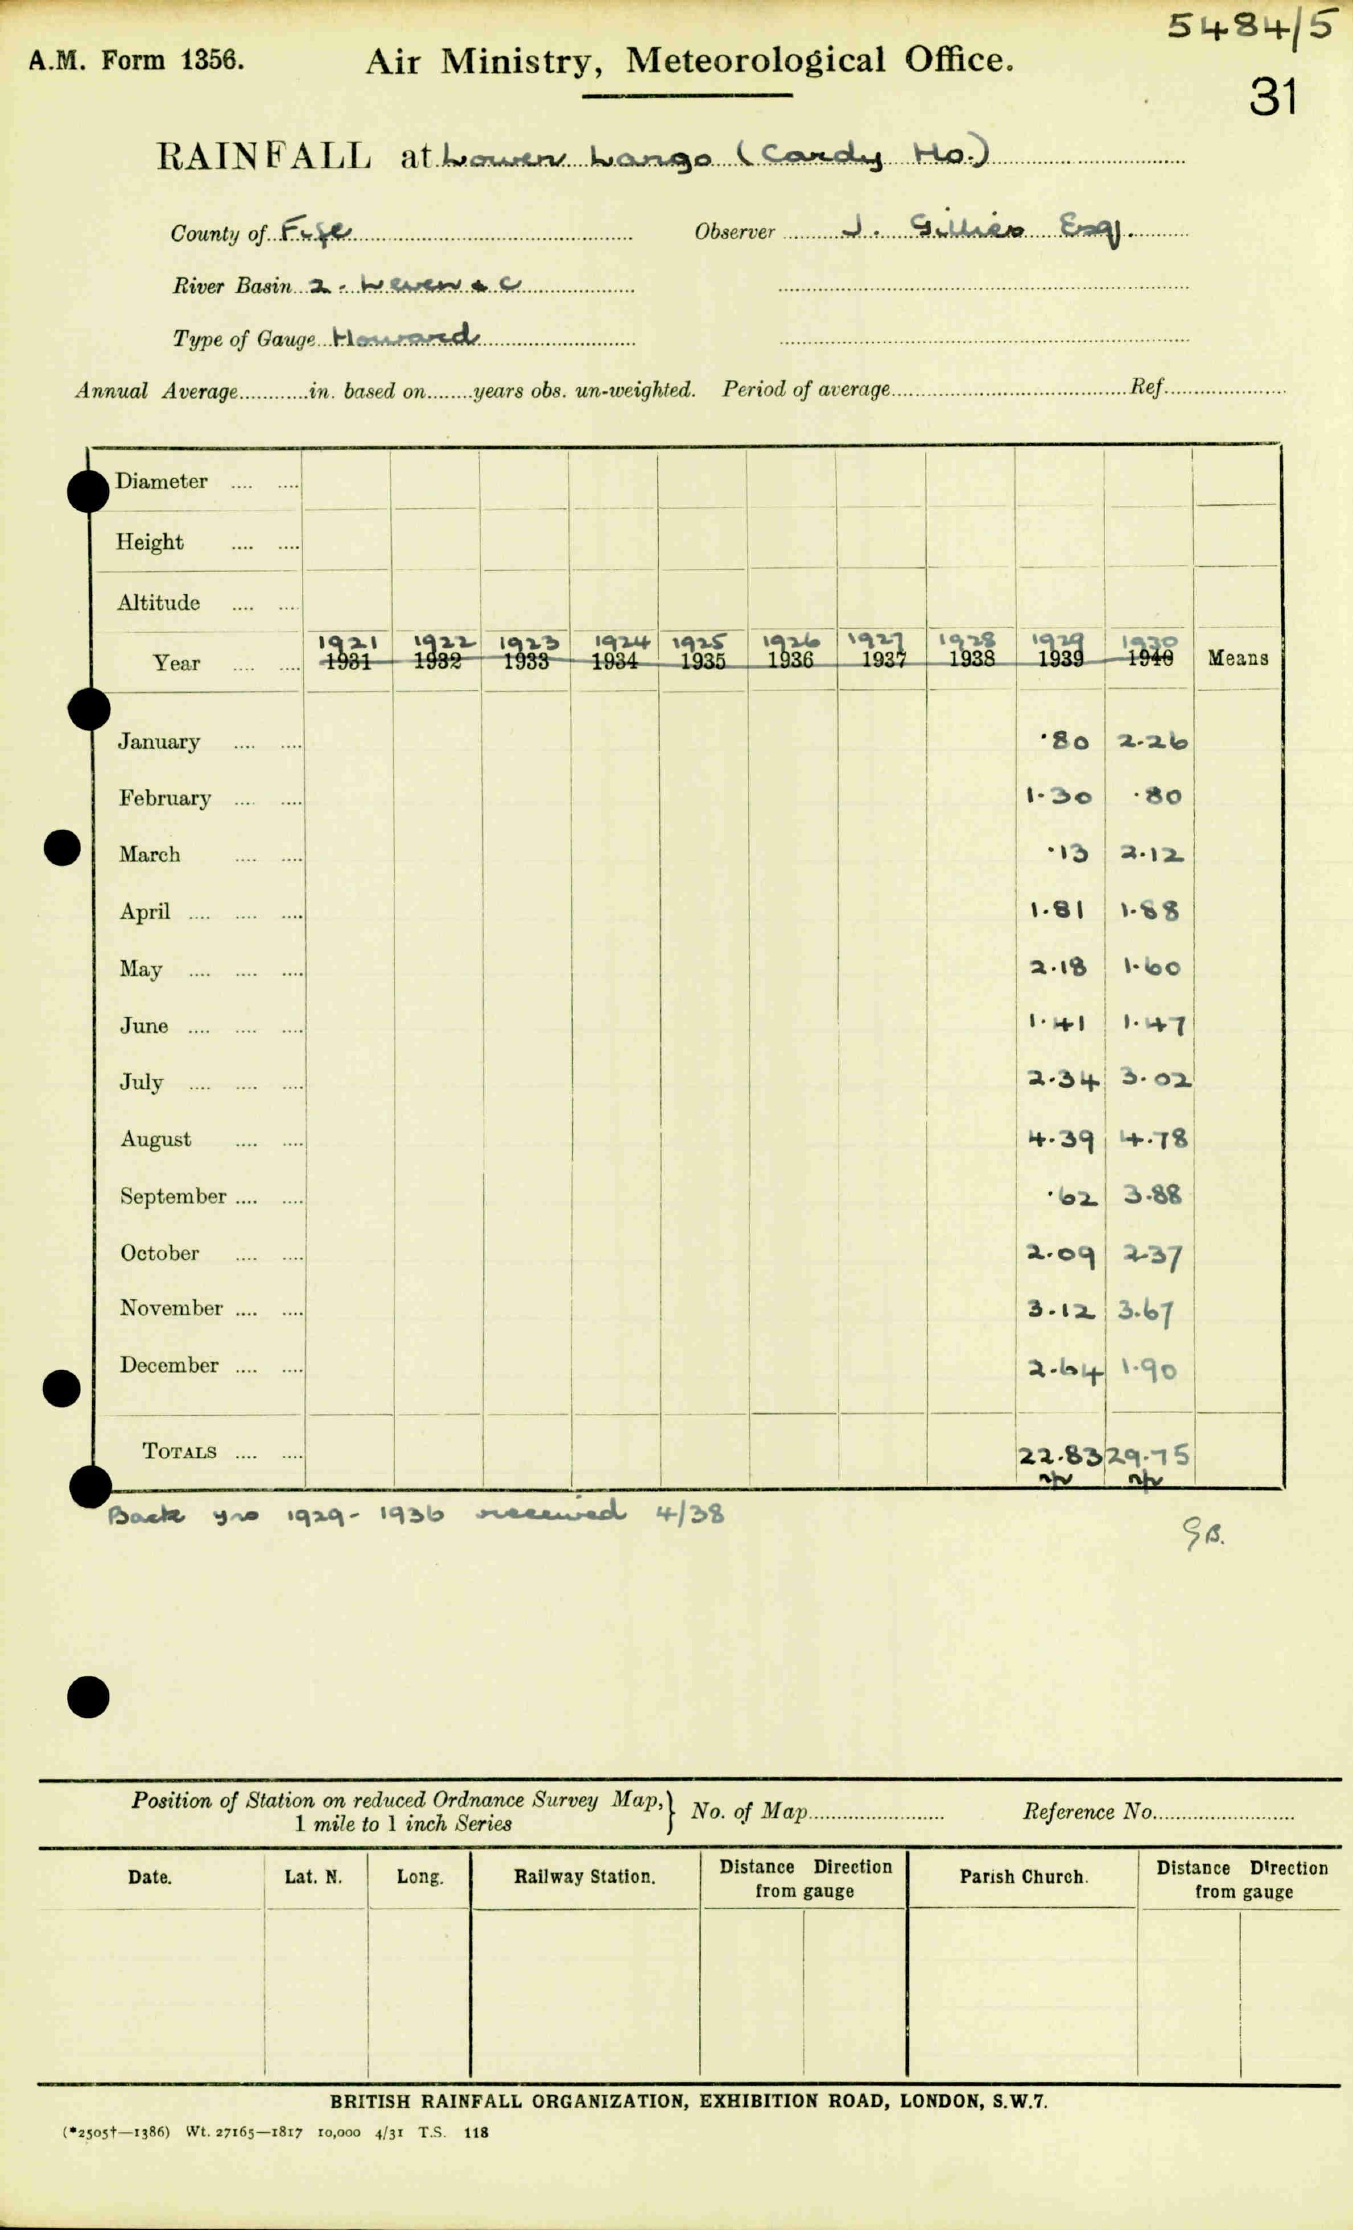 5484/5
A.M. Form 1356. Air Ministry, Meteorological Office.
31
RAINFALL at Lower Largo (Cardy Ho.)
County of Fife Observer J. Gillies Esq.
River Basin 2. Leven & C
Type of Gauge Howard
Annual Average............in. based on........years obs. un-weighted. Period of average............Ref............
Diameter .... ....
Height .... ....
Altitude .... ....
1921 1922 1923 1924 1925 1926 1927 1928 1929 1930
Year .... .... 1931 1932 1933 1934 1935 1936 1937 1938 1939 1940 Means
January .... .... ·80 2.26
February .... .... 1.30 .80
March .... .... ·13 2.12
April .... .... .... 1.81 1.88
May .... .... .... 2.18 1.60
June .... .... .... 1.41 1.47
July .... .... .... 2.34 3.02
August .... .... 4.39 4.78
September .... .... ·62 3.88
October .... .... 2.09 2.37
November .... .... 3.12 3.67
December .... .... 2.64 1.90
TOTALS .... .... 22.83 29.75
Back yrs 1929-1936 received 4/38
GB.
Position of Station on reduced Ordnance Survey Map, } No. of Map............ Reference No............
1 mile to 1 inch Series
Date. Lat. N. Long. Railway Station. Distance Direction Parish Church. Distance Direction
from gauge from gauge
BRITISH RAINFALL ORGANIZATION, EXHIBITION ROAD, LONDON, S.W.7.
(*2505†—1386) Wt. 27165—1817 10,000 4/31 T.S. 118